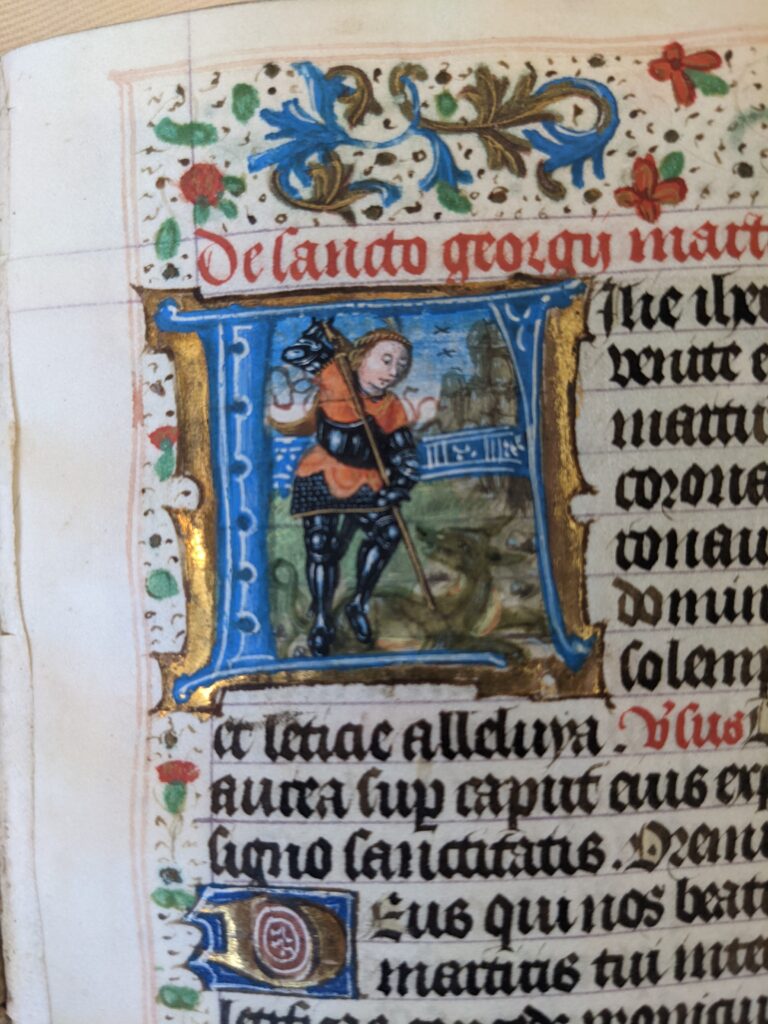 De sancto georgij mart
Filie iher
venite e
martir
corona
ronau
domin
solemp
et leticie alleluya. Vsus
aurea sup caput eius exp
signo sanctitatis. Orem
Deus qui nos beat
martiris tui inte
letificas concede